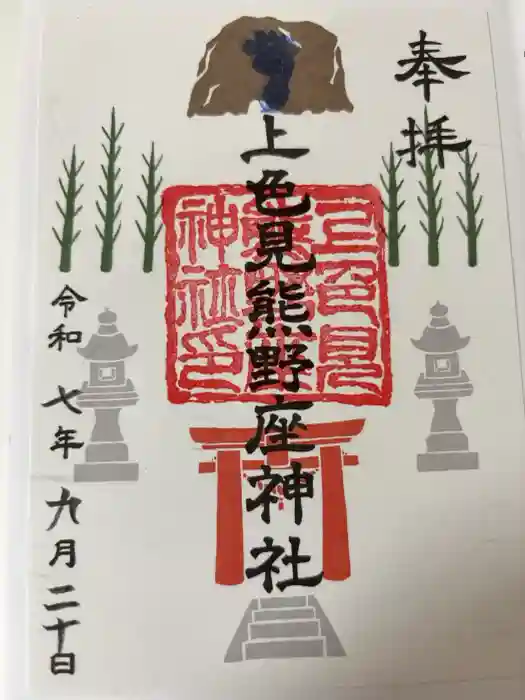 奉拝
上色見熊野座神社
上色見熊野座神社印
令和七年九月二十日